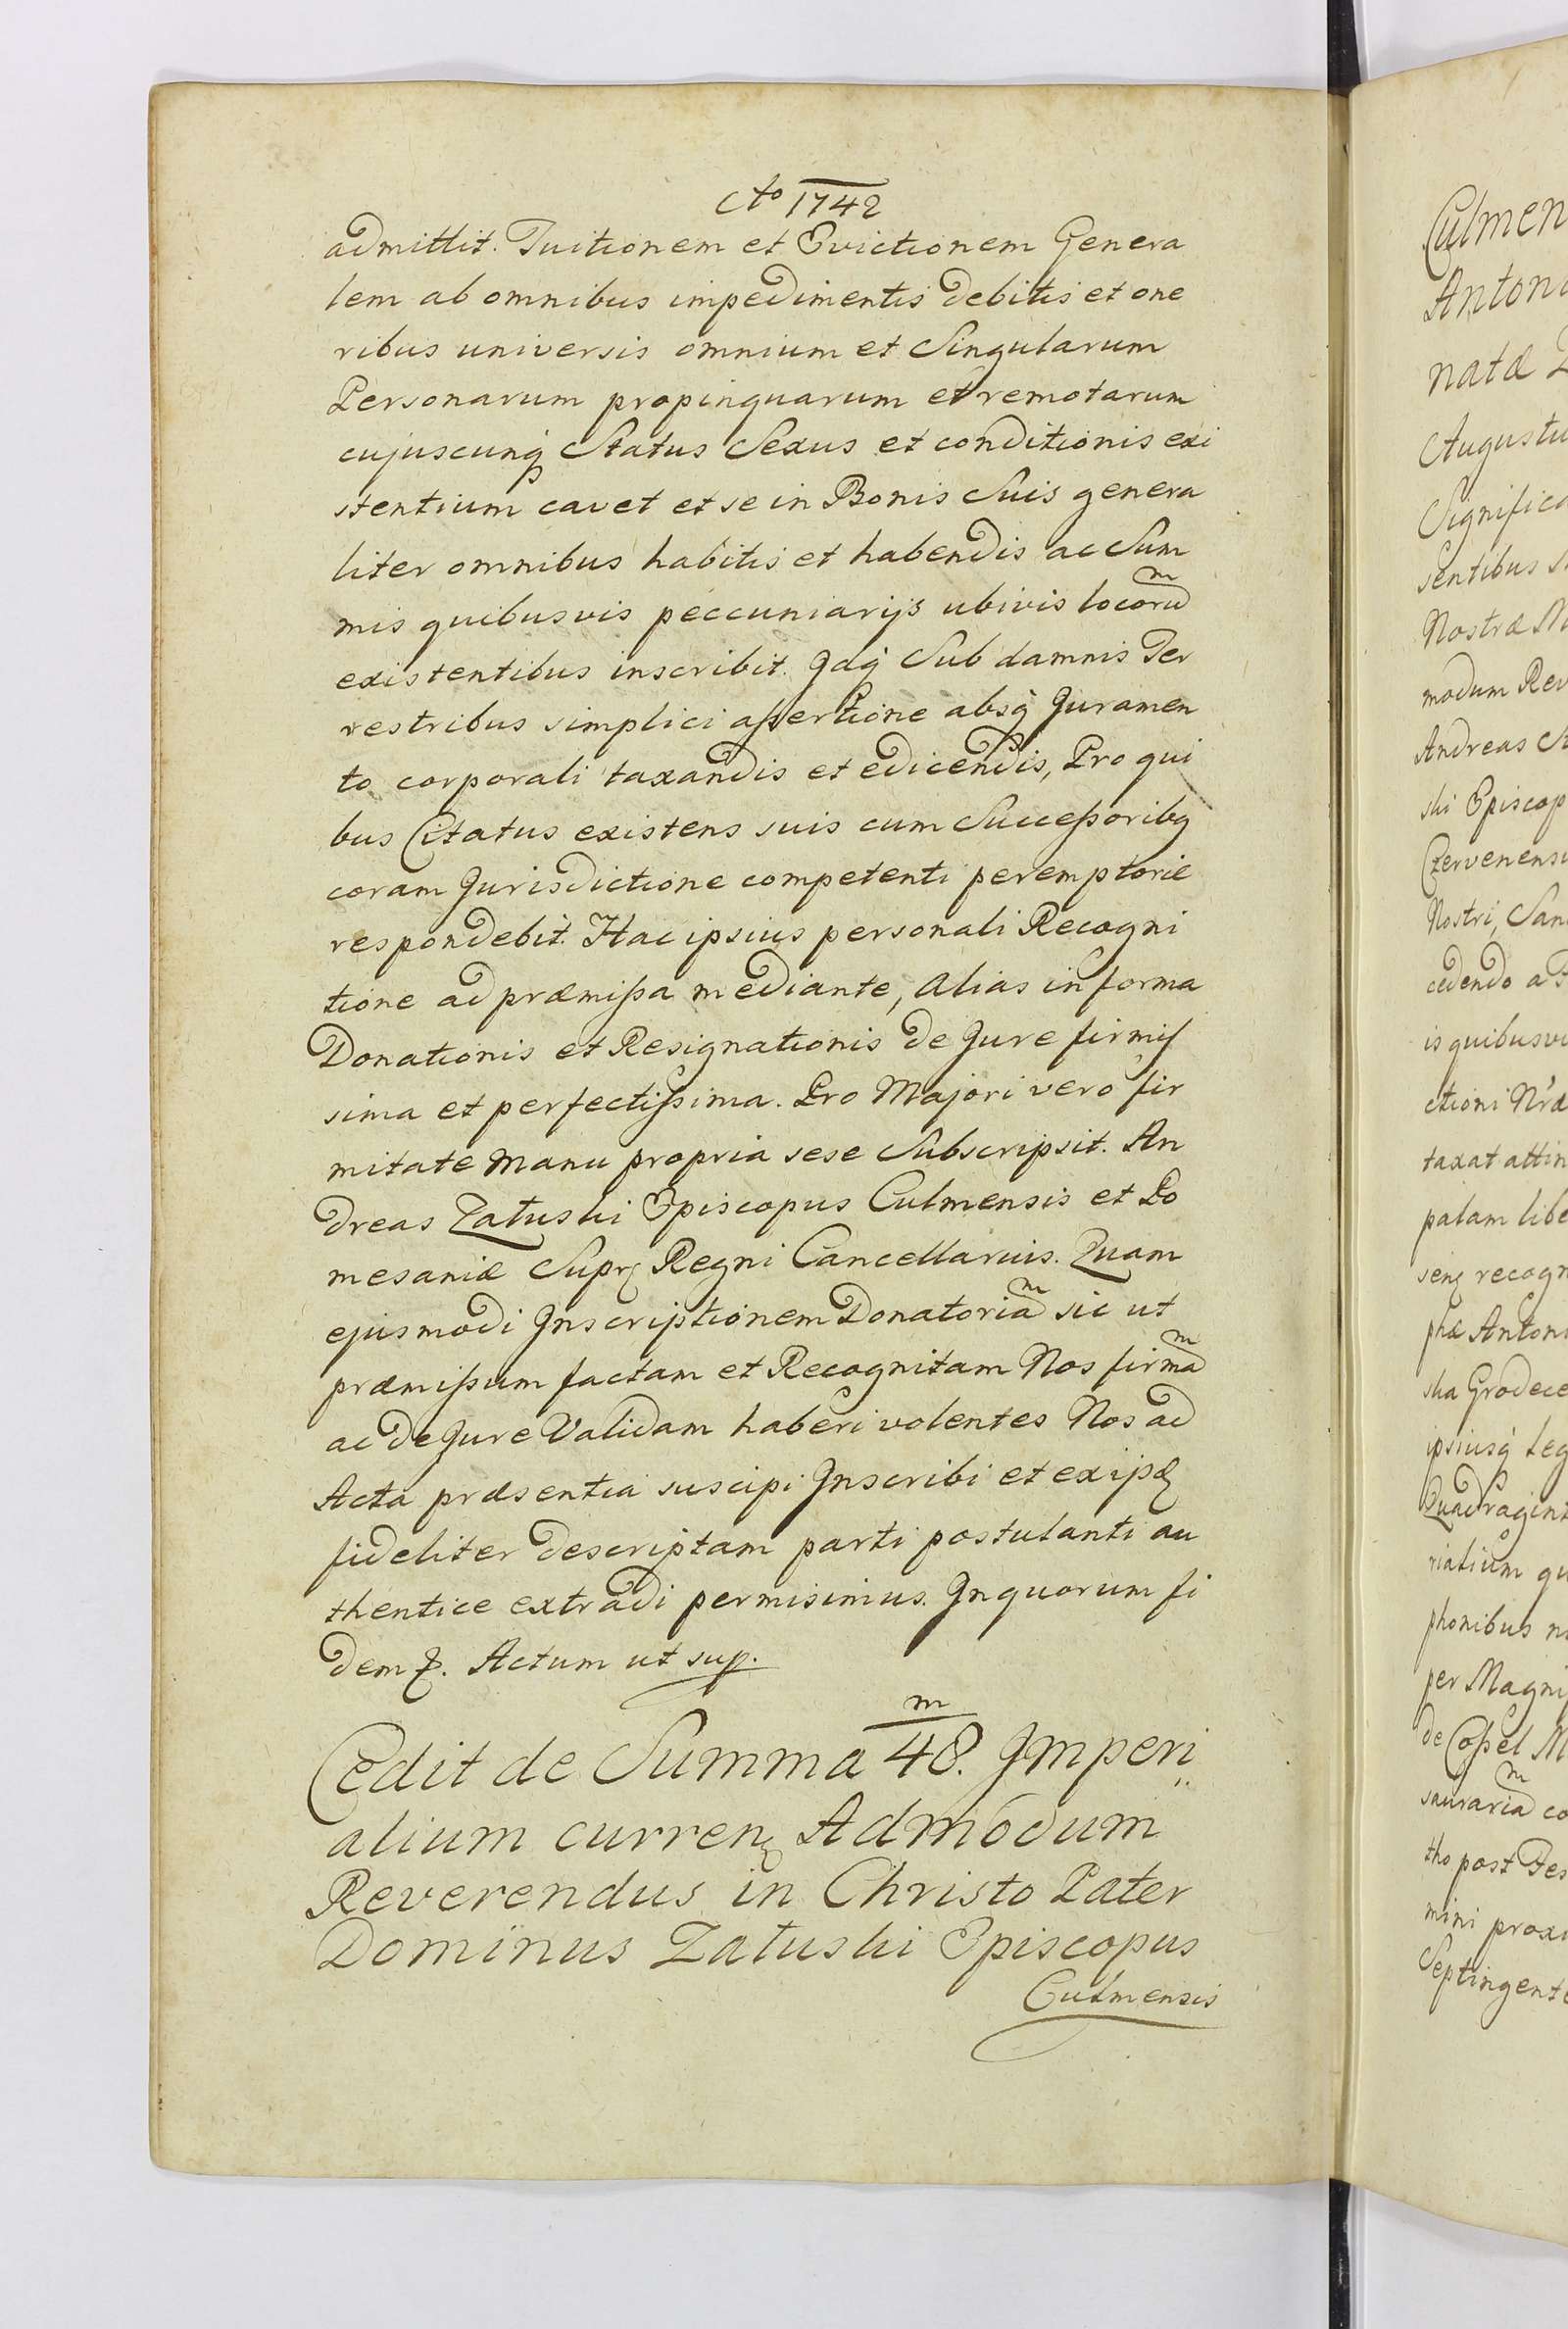 Ao 1742
admittit. Tuitionem et Evictionem Genera
lem ab omnibus impedimentis debitis et one
ribus universis omnium et Singularum
Personarum propinquarum et remotarum
cujuscunq Status Sexus et conditionis exi
stentium cavet et se in Bonis Suis genera
liter omnibus habitis et habendis ac Sum
mis quibusvis peccuniarijs ubivis locorum
existentibus inscribit. Idq Sub damnis Ter
restribus simplici assertione absq Juramen
to corporali taxandis et edicendis, Pro qui
bus Citatus existens suis cum Successoribq
coram Jurisdictione competenti peremptorie
respondebit. Hac ipsius personali Recogni
tione ad præmissa mediante, alias in forma
Donationis et Resignationis de Jure firmis
sima et perfectissima. Pro Majori vero fir
mitate manu propria sese Subscripsit. An
dreas Zatuski Episcopus Culmensis et Po
mesaniæ Supr Regni Cancellarius. Quam
ejusmodi Inscriptionem Donatoriam sic ut
præmissum factam et Recognitam Nos firmam
ac de Jure Validam haberi volentes Nos ad
Acta præsentia suscipi Inscribi et ex ijsd
fideliter descriptam parti postulanti au
thentice extradi permisimus. In quorum fi
dem &. Actum ut sup.
Cedit de Summa 48.m Imperi
alium curren Admodum
Reverendus in Christo Pater
Dominus Zatuski Episcopus
Culmensis
Culmen
Antoni
natæ
Augustu
Significa
sentibus
Nostræ M
modum Rev
Andreas
ski Episcop
Czervenensi
Nostri, San
cedendo a
is quibusvi
ctioni Nræ
taxat attin
palam libe
sen recogn
phæ Antoni
ska Grodece
ipsiusq Leg
Quadragint
riatium qu
phonibus n
per Magnif
de Cossel M
sauraria co
tho post Fes
mini proxi
Septingente